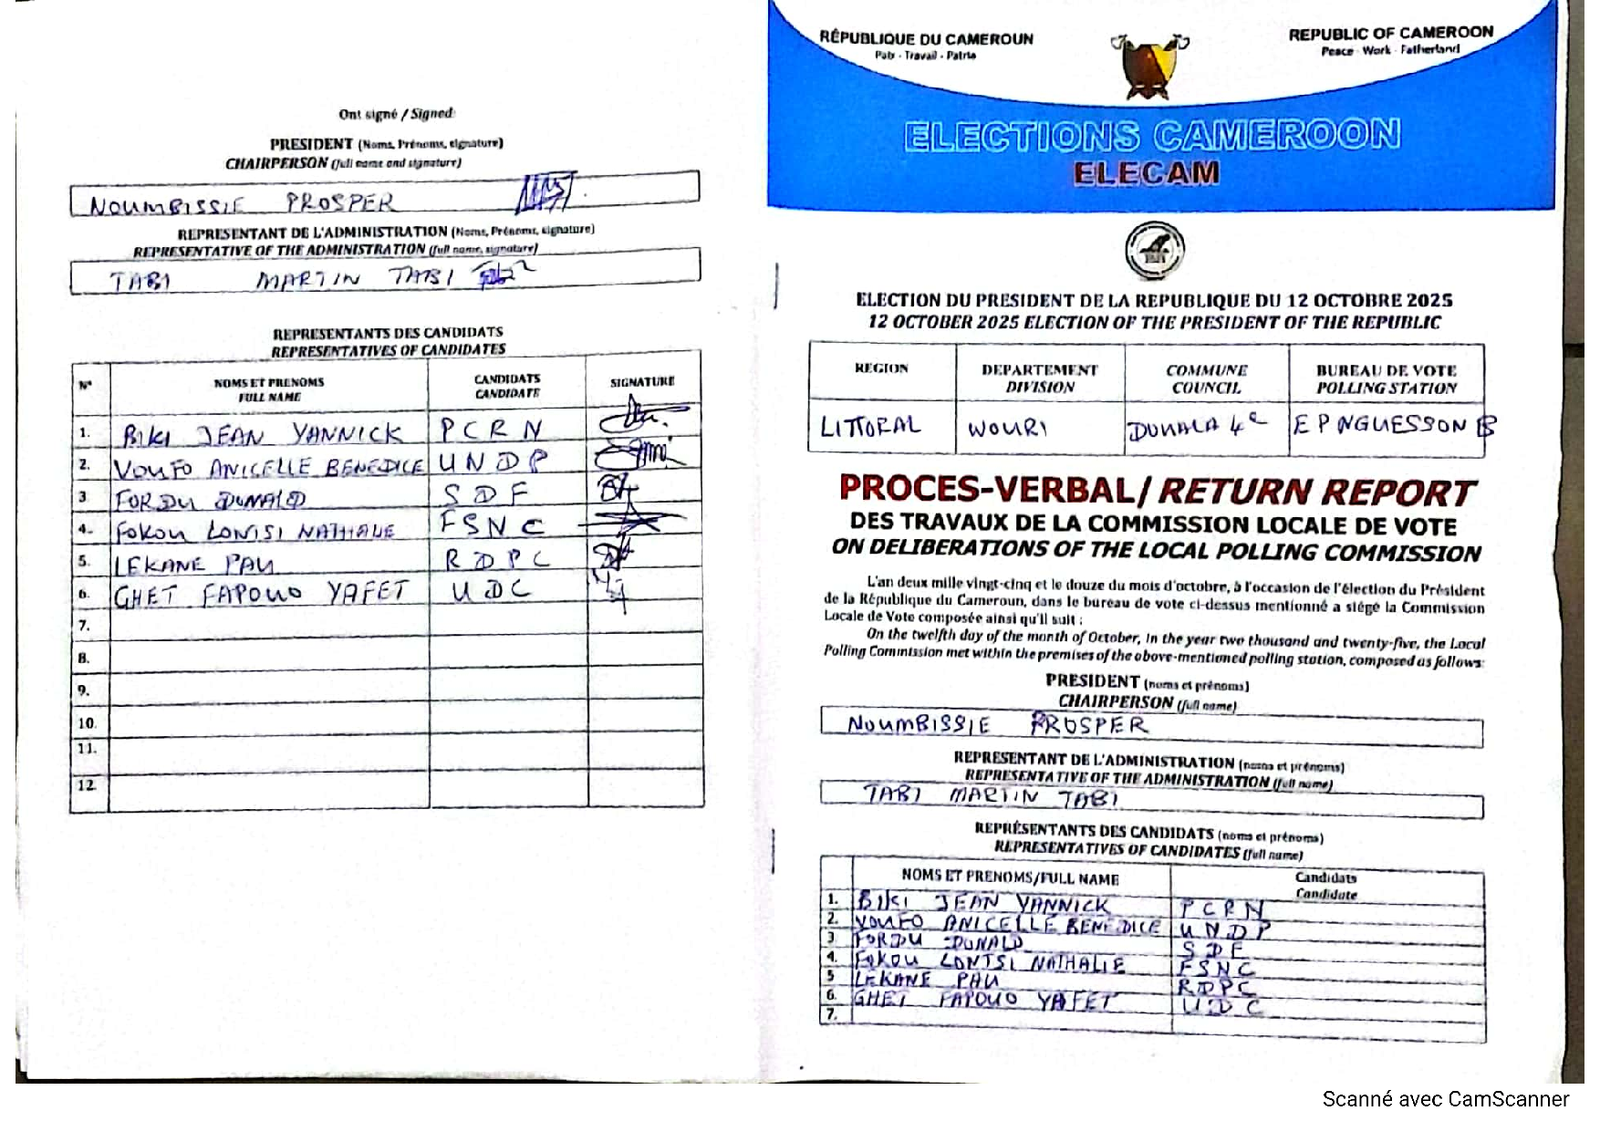 Ont signé / Signed:
PRESIDENT (Noms, Prénoms, signature)
CHAIRPERSON (full name and signature)
NOUMBISSIE PROSPER
REPRESENTANT DE L'ADMINISTRATION (Noms, Prénoms, signature)
REPRESENTATIVE OF THE ADMINISTRATION (full name, signature)
TABI MARTIN TABI
REPRESENTANTS DES CANDIDATS
REPRESENTATIVES OF CANDIDATES
N° NOMS ET PRENOMS CANDIDATS SIGNATURE
FULL NAME CANDIDATE
1. BIKI JEAN YANNICK PCRN
2. VOUFO ANICELLE BENEDICE UNDP
3 FORDU DONALD SDF
4. FOKOU LONTSI NATHALIE FSNC
5. LEKANE PAU RDPC
6. GHET FAPOUO YAFET UDC
7.
8.
9.
10.
11.
12
RÉPUBLIQUE DU CAMEROUN
Paix - Travail - Patrie
REPUBLIC OF CAMEROON
Peace - Work - Fatherland
ELECTIONS CAMEROON
ELECAM
ELECTION DU PRESIDENT DE LA REPUBLIQUE DU 12 OCTOBRE 2025
12 OCTOBER 2025 ELECTION OF THE PRESIDENT OF THE REPUBLIC
REGION DEPARTEMENT COMMUNE BUREAU DE VOTE
DIVISION COUNCIL POLLING STATION
LITTORAL WOURI DOUALA 4e EP NGUESSON B
PROCES-VERBAL/ RETURN REPORT
DES TRAVAUX DE LA COMMISSION LOCALE DE VOTE
ON DELIBERATIONS OF THE LOCAL POLLING COMMISSION
L'an deux mille vingt-cinq et le douze du mois d'octobre, à l'occasion de l'élection du Président
de la République du Cameroun, dans le bureau de vote ci-dessus mentionné a siégé la Commission
Locale de Vote composée ainsi qu'il suit :
On the twelfth day of the month of October, in the year two thousand and twenty-five, the Local
Polling Commission met within the premises of the above-mentioned polling station, composed as follows:
PRESIDENT (noms et prénoms)
CHAIRPERSON (full name)
NOUMBISSIE PROSPER
REPRESENTANT DE L'ADMINISTRATION (noms et prénoms)
REPRESENTATIVE OF THE ADMINISTRATION (full name)
TABI MARTIN TABI
REPRÉSENTANTS DES CANDIDATS (noms et prénoms)
REPRESENTATIVES OF CANDIDATES (full name)
NOMS ET PRENOMS/FULL NAME Candidats
Candidate
1. BIKI JEAN YANNICK PCRN
2. VOUFO ANICELLE BENEDICE UNDP
3 FORDU DONALD SDF
4. FOKOU LONTSI NATHALIE FSNC
5 LEKANE PAU RDPC
6. GHET FAPOUO YAFET UDC
7.
Scanné avec CamScanner